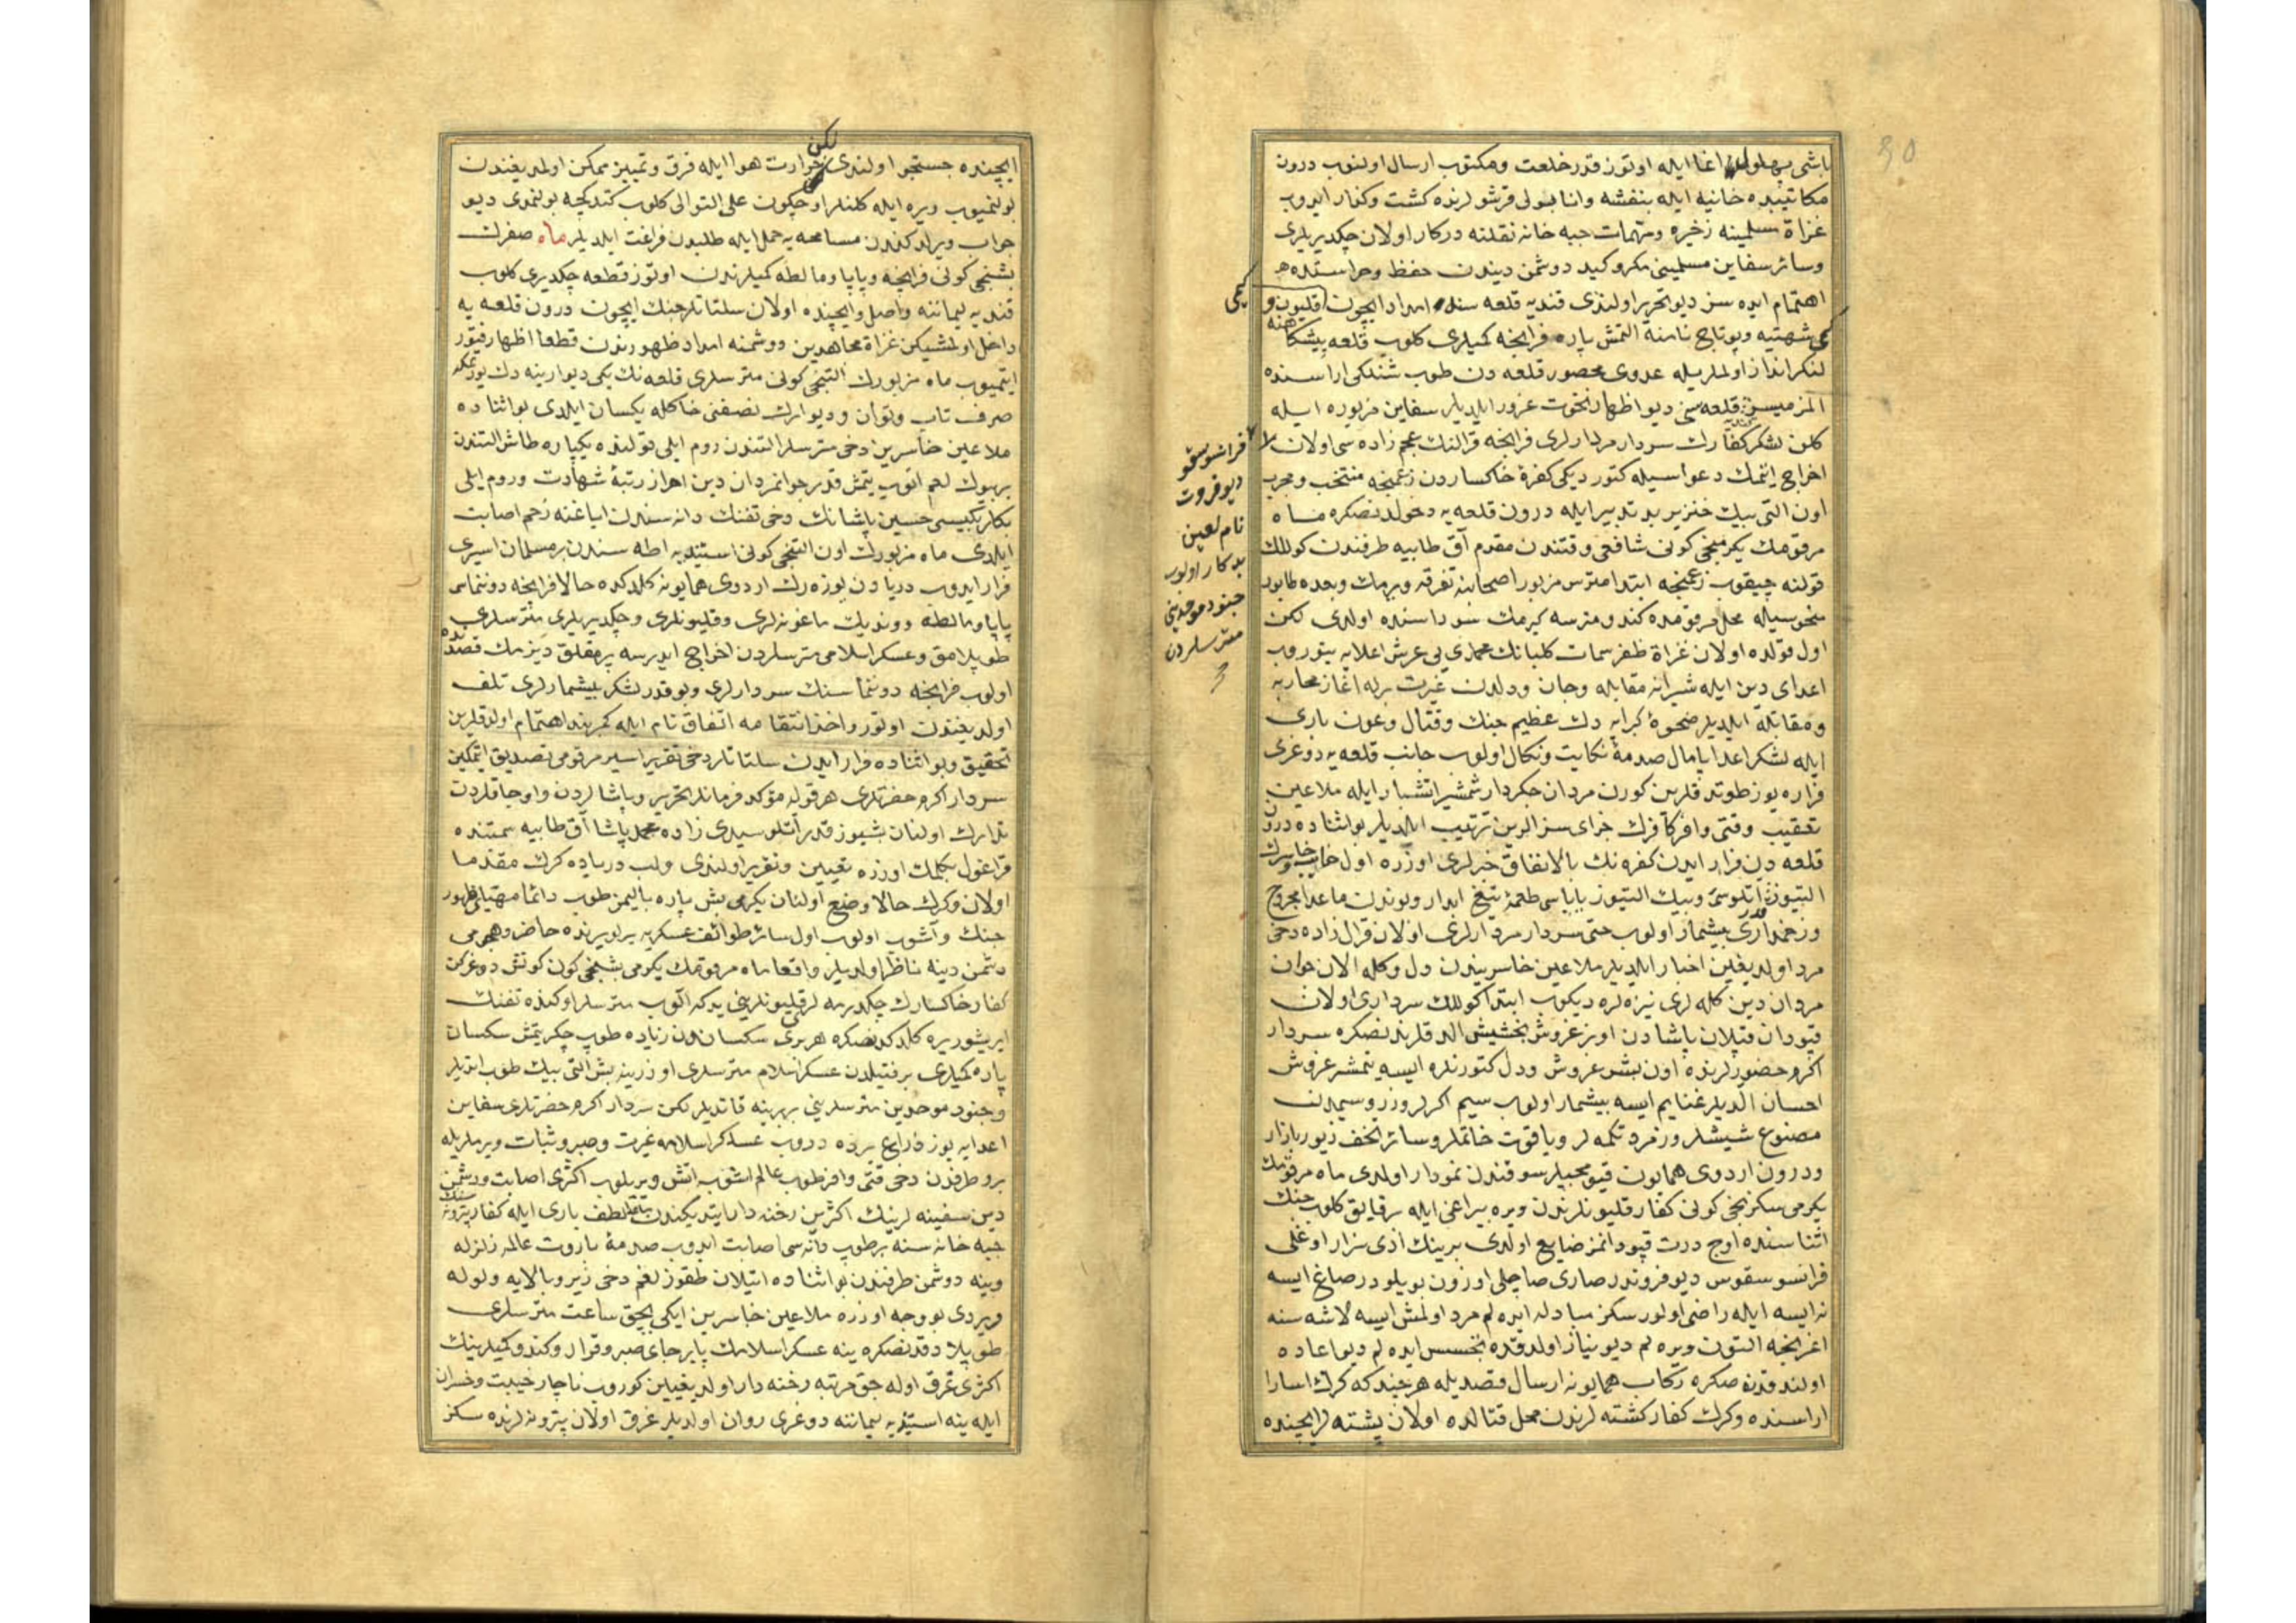 باشی بهلول اغا ایله اوتوز قدر خلعت ومکتوب ارسال اولنوب درون
مکاتیبده خانیه ایله بنفشه وانابولی قرشولرنده کشت وکذار ایدوب
غزاة مسلمینه زخیره ومهمات جبه خانه نقلنه درکار اولان چکدیریلری
وسائر سفاین مسلمینی مکر وکید دوشمن دیندن حفظ وحراستده
اهتمام ایده سز دیو تحریر اولندی قندیه قلعه سنه امداد ایچون قلیون و
شهتیه وپوتاج نامنه التمش پاره فرانجه کمیلری کلوب قلعه پیشکاهنه
لنکر انداز اولملریله عدوی محصور قلعه دن طوب شنلکی اراسنده
المزمیسز قلعه یی دیو اظهار نخوت غرور ایلدیلر سفاین مزبوره ایله
کلن لشکر کفارك سردار مردارلری فرانجه قرالنك عمجه زاده سی اولان
اخراج ایتمك دعواسیله کتوردیکی کفرۀ خاکساردن زعمنجه منتخب ومجرب
اون التی بیك خنزیر بد تدبیر ایله درون قلعه یه دخولدنصکره ماه
مرقومك یکرمنجی کونی شافعی وقتندن مقدم آق طابیه طرفندن کوللك
قولنه چیقوب زعمنجه ابتدا مترس مزبور اصحابنه تفرقه ویرمك وبعده طابور
منحوسیله محل مرقومده کندو مترسه کیرمك سوداسنده اولدی لکن
اول قولده اولان غزاة ظفر سمات کلبانك محمدی یی عرش اعلایه یتوروب
اعدای دین ایله شیرانه مقابله وجان ودلدن غیرت برله اغاز محاربه
ومقاتله ایلدیلر ضحوۀ کبرایه دك عظیم جنك وقتال وعون باری
ایله لشکر اعدا پامال صدمۀ نکایت ونکال اولوب جانب قلعه یه دوغری
فراره یوز طوتدقلرین کورن مردان جکردار شمشیر اتشبار ایله ملاعین
تعقیب وقتی وافر کافرك جزای سزالرین ترتیب ایلدیلر بو اثناده درون
قلعه دن فرار ایدن کفره نك بالاتفاق خبرلری اوزره اول خایب وخاسرك
التیوز اتلوسی وبیك التیوز یایاسی طعمۀ تیغ ابدار وبوندن ماعدا مجروح
وزخمدارلری بیشمار اولوب حتی سردار مردارلری اولان قرال زاده دخی
مرد اولدیغین اخبار ایلدیلر ملاعین خاسریندن دل وکله الان جوان
مردان دین کله لری نیزه لره دیکوب ابتدا کوللك سرداری اولان
قپودان قپلان پاشادن اونر غروش بخشیش الدقلرندنصکره سردار
اکرم حضورلرنده اون بشر غروش ودل کتورنلره ایسه یتمشر غروش
احسان الدیلر غنایم ایسه بیشمار اولوب سیم اکرلر وزر وسیمدن
مصنوع شیشلر وزمرد تکمه لر ویاقوت خاتملر وسائر تحف زیور بازار
ودرون اردوی همایون قیومجیلر سوقندن نمودار اولدی ماه مرقومك
یکرمی سکزنجی کونی کفار قلیونلرندن ویره بیراغی ایله بر قایق کلوب جنك
اثناسنده اوچ درت قپودانمز ضایع اولدی برینك ادی نزار اوغلی
فرانسو سقوس دیوفروتدر صاری صاچلی اوزون بویلودر صاغ ایسه
نه ایسه ایله راضی اولورسکز مبادله ایده لم مرد اولمش ایسه لاشه سنه
اغرنجه التون ویره لم دیو نیاز اولدقده تجسس ایده لم دیو اعاده
اولندقدنصکره رکاب همایونه ارسال قصدیله هر چند که کرك اسارا
اراسنده وکرك کفار کشته لرندن محل قتالده اولان پشته لر ایچنده
کمی
فرانسو سقو
دیوفروت
نام لعین
بدکار اولوب
جنود موحدینی
مترسلردن
لکن
ایچنده جستجو اولندی حرارت هوا ایله فرق وتمییز ممکن اولمدیغندن
بولنمیوب ویره ایله کلنلر اوچ کون علی التوالی کلوب کتدکچه بولنمدی دیو
جواب ویرلدکندن مسامحه یه حمل ایله طلبدن فراغت ایلدیلر ماه صفرك
بشنجی کونی فرانجه وپاپا ومالطه کمیلرندن اوتوز قطعه چکدیری کلوب
قندیه لیماننه واصل وایچنده اولان سلتاتلر جنك ایچون درون قلعه یه
داخل اولمشیکن غزاة مجاهدین دوشمنه امداد ظهورندن قطعا اظهار فتور
ایتمیوب ماه مزبورك التنجی کونی مترسلری قلعه نك یکی دیوارینه دك یورتمکه
صرف تاب وتوان ودیوارك نصفنی خاکله یکسان ایلدی بو اثناده
ملاعین خاسرین دخی مترسلر التندن روم ایلی قولنده یکپاره طاش التندن
بر بیوك لغم اتوب یتمش قدر جوانمردان دین احراز رتبۀ شهادت وروم ایلی
بکلربکیسی حسین پاشانك دخی تفنك دانه سندن ایاغنه زخم اصابت
ایلدی ماه مزبورك اون التنجی کونی استندیه اطه سندن بر مسلمان اسیری
فرار ایدوب دریادن یوزه رك اردوی همایونه کلدکده حالا فرانجه دوننماسی
پاپا ومالطه ووندیك ماغونه لری وقلیونلری وچکدیریلری مترسلری
طوپلامق وعسکر اسلامی مترسلردن اخراج ایدرسه یرمقلق دیزمك قصدنده
اولوب فرانجه دوننماسنك سردارلری وبو قدر لشکر بیشمارلری تلف
اولدیغندن اوتورو اخذ انتقامه اتفاق تام ایله کمربند اهتمام اولدقلرین
تحقیق وبو اثناده فرار ایدن سلتاتلر دخی تقریر اسیر مرقومی تصدیق ایتمکین
سردار اکرم حضرتلری هر قوله مؤکد فرمانلر تحریر وپاشالردن واوجاقلردن
تدارك اولنان بشیوز قدر اتلو سیدی زاده محمد پاشا آق طابیه سمتنده
قراغول بکلمك اوزره تعیین وتقریر اولندی ولب دریاده کرك مقدما
اولان وکرك حالا وضع اولنان یکرمی بش پاره بالیمز طوب دائما مهیای ظهور
جنك وآشوب اولوب اول سائر طوائف عسکریه یرلو یرنده حاضر وهجومی
دشمن دینه ناظر اولدیلر واقعا ماه مرقومك یکرمی بشنجی کون کونش دوغرکن
کفار خاکسارك چکدیرمه لر قلیونلرینی یدکه الوب مترسلر اوکنده تفنك
ایریشور یره کلدکدنصکره هر بری سکساندن زیاده طوب چکر یتمش سکسان
پاره کمیلری بر فتیلدن عسکر اسلام مترسلری اوزرینه بش التی بیك طوب اتدیلر
وجنود موحدین مترسلرینی بربرینه قاتدیلر لکن سردار اکرم حضرتلری سفاین
اعدایه یوز ذراع یرده دروب عساکر اسلامه غیرت وصبر وثبات ویرملریله
بو طرفدن دخی قتی وافر طوب عالم اشوب اتش ویریلوب اکثری اصابت ودشمن
دین سفینه لرینك اکثرین رخنه دار ایتدیکندن لطف باری ایله کفار پترونه سنك
جبه خانه سنه بر طوب دانه سی اصابت ایدوب صدمۀ باروت عالمه زلزله
وینه دوشمن طرفندن بو اثناده اتیلان طقوز لغم دخی زیر وبالایه ولوله
ویردی بو وجه اوزره ملاعین خاسرین ایکی بچق ساعت مترسلری
طوپلادقدنصکره ینه عسکر اسلامك پابرجای صبر وقرار وکندو کمیلرینك
اکثری غرق اوله جق مرتبه رخنه دار اولدیغین کوروب ناچار خیبت وخسران
ایله ینه استندیه لیماننه دوغری روان اولدیلر غرق اولان پترونه لرنده سکز